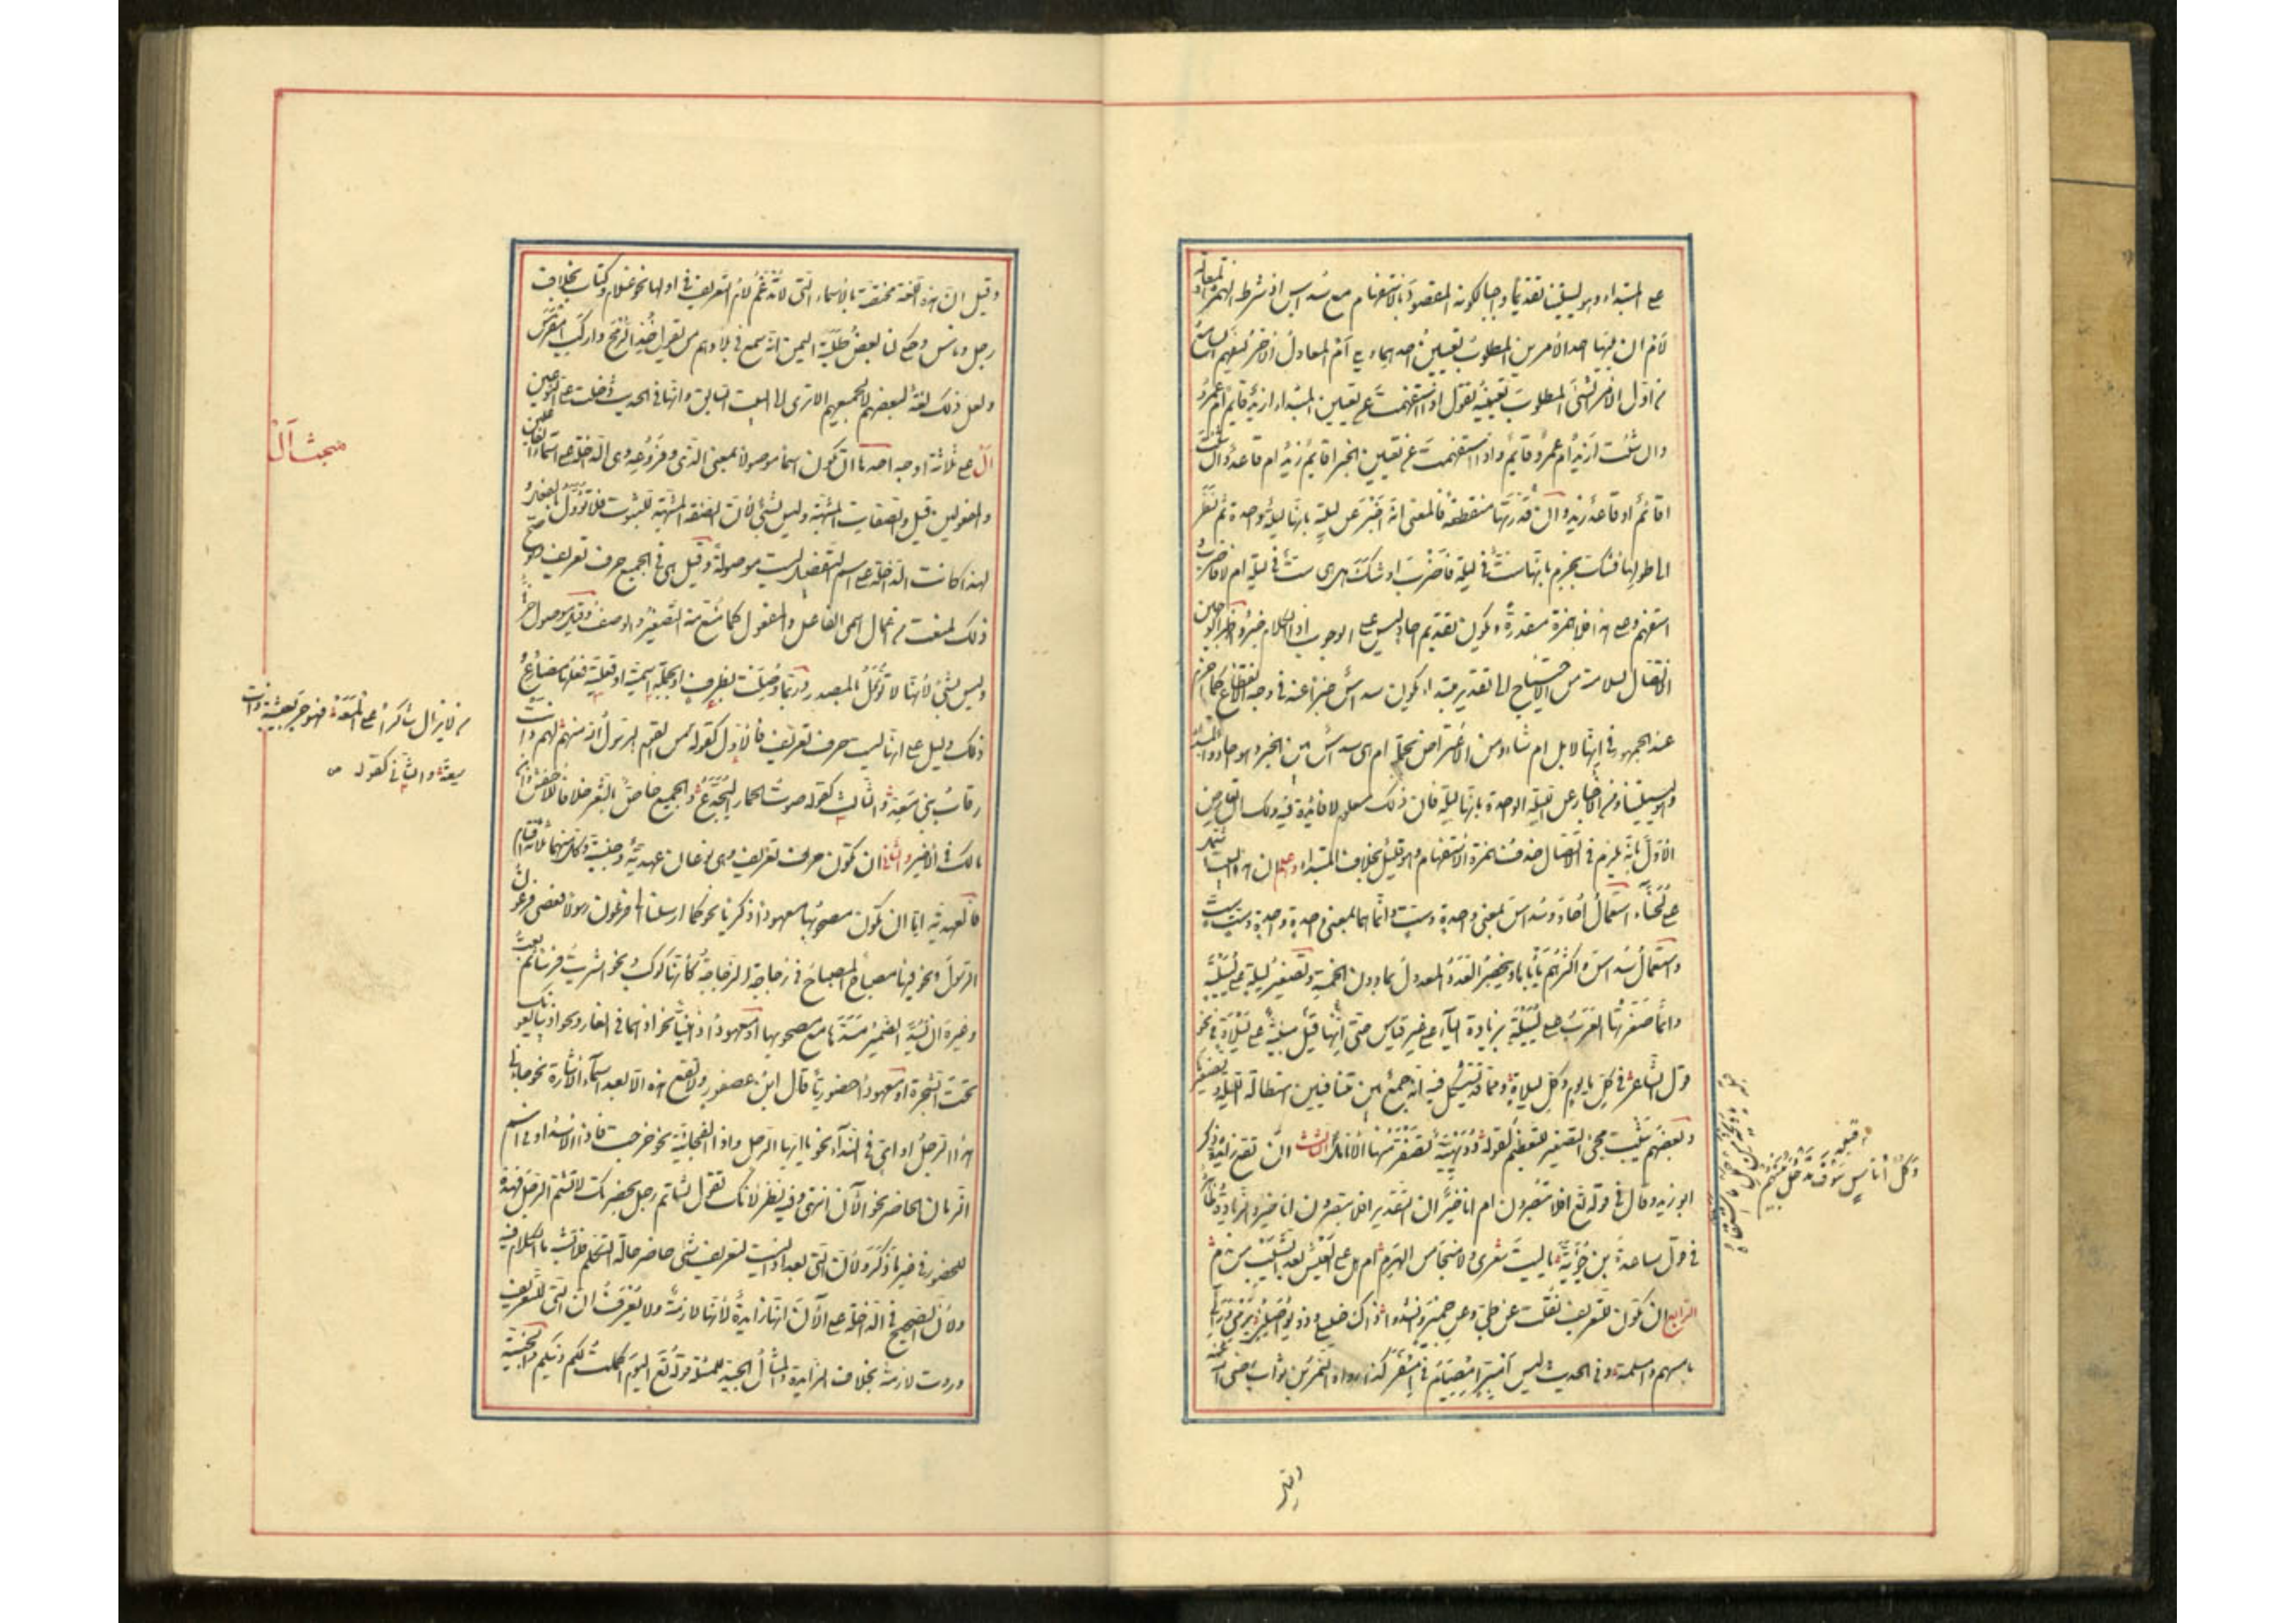 على المبتداء وهو لييلتنا تقديما واجبا لكونه المقصود بالاستفهام مع سداس اذ شرط الهمزة المعادلة
لأم ان يليها احد الأمرين المطلوب تعيين احدهما ويلي أم المعادل الآخر ليفهم السامع
من اول الأمر الشئ المطلوب تعيينه تقول اذا استفهمت عن تعيين المبتداء ازيد قايم أم عمرو
وان شئت ازيد ام عمرو قايم واذا استفهمت عن تعيين الخبر اقايم زيد ام قاعد وان شئت
اقائم ام قاعد زيد وان قدرتها منقطعة فالمعنى انه اخبر عن ليلة بانها ليلة واحدة ثم نظر
الى طولها فشك فجزم بانها ست في ليلة فاضرب او شك هل هي ست في ليلة ام لا فاضرب و
استفهم وعلى هذا فلا همزة مقدرة ويكون تقديم احاد ليس على الوجوب اذ الكلام خبر واظهر الوجهين
الاتصال لسلامته من الاحتياج الى تقدير مبتداء يكون سداس خبرا عنه في وجه الانقطاع كما لزم
عند الجمهور في انها لابل ام شاء ومن الاعتراض بجملة ام هي سداس بين الخبر وهو احاد والمبتداء
وهو لييلتنا ومن الاخبار عن الليلة الواحدة بانها ليلة فان ذلك معلوم لا فائدة فيه ولك ان تعارض
الأول بانه يلزم في الاتصال حذف همزة الاستفهام وهو قليل بخلاف المبتداء واعلم ان هذا البيت اشتمل
على لحنات استعمال أحاد وسداس بمعنى واحدة وست وانما هما بمعنى واحدة واحدة وست ست
واستعمال سداس واكثرهم يأباه ويخص العدد المعدول بما دون الخمسة وتصغير ليلة على لييلة
وانما صغرتها العرب على لييلية بزيادة الياء على غير قياس حتى انها قيل مبنية على ليلاة في نحو
قول الشاعر في كل ما يوم وكل ليلاة ومما قد يشكل فيه انه جمع بين متنافيين استطالة الليلة وتصغيرها
وبعضهم يثبت مجئ التصغير للتعظيم كقوله دويهية تصفر منها الأنامل الثالث ان تقع زائدة ذكره
ابو زيد وقال في قوله تع افلا تبصرون ام انا خير ان التقدير افلا تبصرون انا خير والزيادة ظاهرة
في قول ساعدة بن جؤية يا ليت شعرى ولا منجا من الهرم ام هل على العيش بعد الشيب من ندم
الرابع ان تكون للتعريف نقلت عن طي وعن حمير وانشدوا ذاك خليلي وذو يواصلني يرمى ورائى
بامسهم وامسلمة وفى الحديث ليس من امبر امصيام في امسفر كذا رواه النمر بن تولب رضى الله عنه
من قبله
وكل أناس سوف تدخل بينهم
وقيل
وقيل ان هذه اللغة مختصة بالأسماء التى لا تدغم لام التعريف في اولها نحو غلام وكتاب بخلاف
رجل وناس وحكى لنا بعض طلبة اليمن انه سمع في بلادهم من يقول خذ الرمح واركب امفرس
ولعل ذلك لغة لبعضهم لا لجميعهم الا ترى الى البيت السابق وانها في الحديث دخلت على النوعين
ال على ثلاثة اوجه احدها ان تكون اسما موصولا بمعنى الذى وفروعه وهى الداخلة على اسماء الفاعلين
والمفعولين قيل والصفات المشبهة وليس بشئ لأن الصفة المشبهة للثبوت فلا تؤول بالفعل و
لهذا كانت الداخلة على اسم التفضيل ليست موصولة وقيل هى في الجميع حرف تعريف ولو صح
ذلك لمنعت من اعمال اسمى الفاعل والمفعول كما منع منه التصغير والوصف وقيل موصول حرفى
وليس بشئ لأنها لا تؤول بالمصدر وربما وصلت بظرف او بجملة اسمية او فعلية فعلها مضارع
ذلك دليل على انها ليست حرف تعريف فالأول كقوله من القوم الرسول الله منهم لهم دانت
رقاب بنى معد والثالث كقوله صوت الحمار اليجدع والجميع خاص بالشعر خلافا للأخفش وابن
مالك في الأخير والثانى ان تكون حرف تعريف وهى نوعان عهدية وجنسية وكل منهما ثلاثة اقسام
فالعهدية اما ان يكون مصحوبها معهودا ذكريا نحو كما ارسلنا الى فرعون رسولا فعصى فرعون
الرسول ونحو فيها مصباح المصباح في زجاجة الزجاجة كأنها كوكب نحو اشتريت فرسا ثم بعت
وعبرة ان يسد الضمير مسدها مع مصحوبها او معهودا ذهنيا نحو اذ هما في الغار ونحو اذ يبايعونك
تحت الشجرة او معهودا حضوريا قال ابن عصفور ولا تقع هذه الا بعد اسماء الاشارة نحو جاءنى
هذا الرجل او اى في النداء نحو يا ايها الرجل واذا الفجائية نحو خرجت فاذا الاسد او في اسم
الزمان الحاضر نحو الآن انتهى وفيه نظر لأنك تقول لشاتم رجل بحضرتك لا تشتم الرجل فهذه
للحضور في غير ما ذكر ولأن التى بعد اذا ليست لتعريف شئ حاضر حالة التكلم فلا تشبه ما الكلام فيه
ولأن الصحيح في الداخلة على الآن انها زايدة لأنها لازمة ولا يعرف ان التى للتعريف
وردت لازمة بخلاف الزايدة والمثال الجيد للمسئلة قوله تع اليوم اكملت لكم دينكم والجنسية
مبحث أل
من لا يزال شاكرا على المعه فهو حر بعيشة ذات
سعة والثانى كقوله